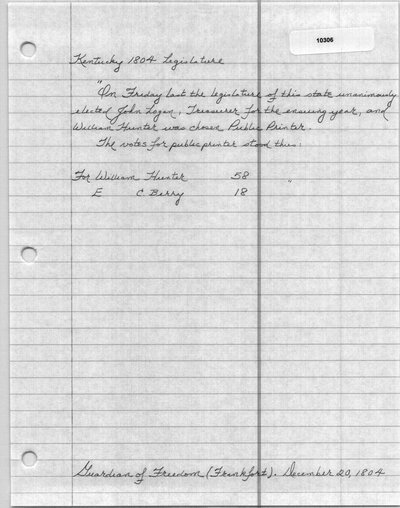 10306
Kentucky 1804 Legislature
"On Friday last the legislature of this state unanimously
elected John Logan, Treasurer for the ensuing year, and
William Hunter was chosen Public Printer.
The votes for public printer stood thus:
For William Hunter 58 "
E C. Berry 18
Guardian of Freedom (Frankfort). December 20, 1804